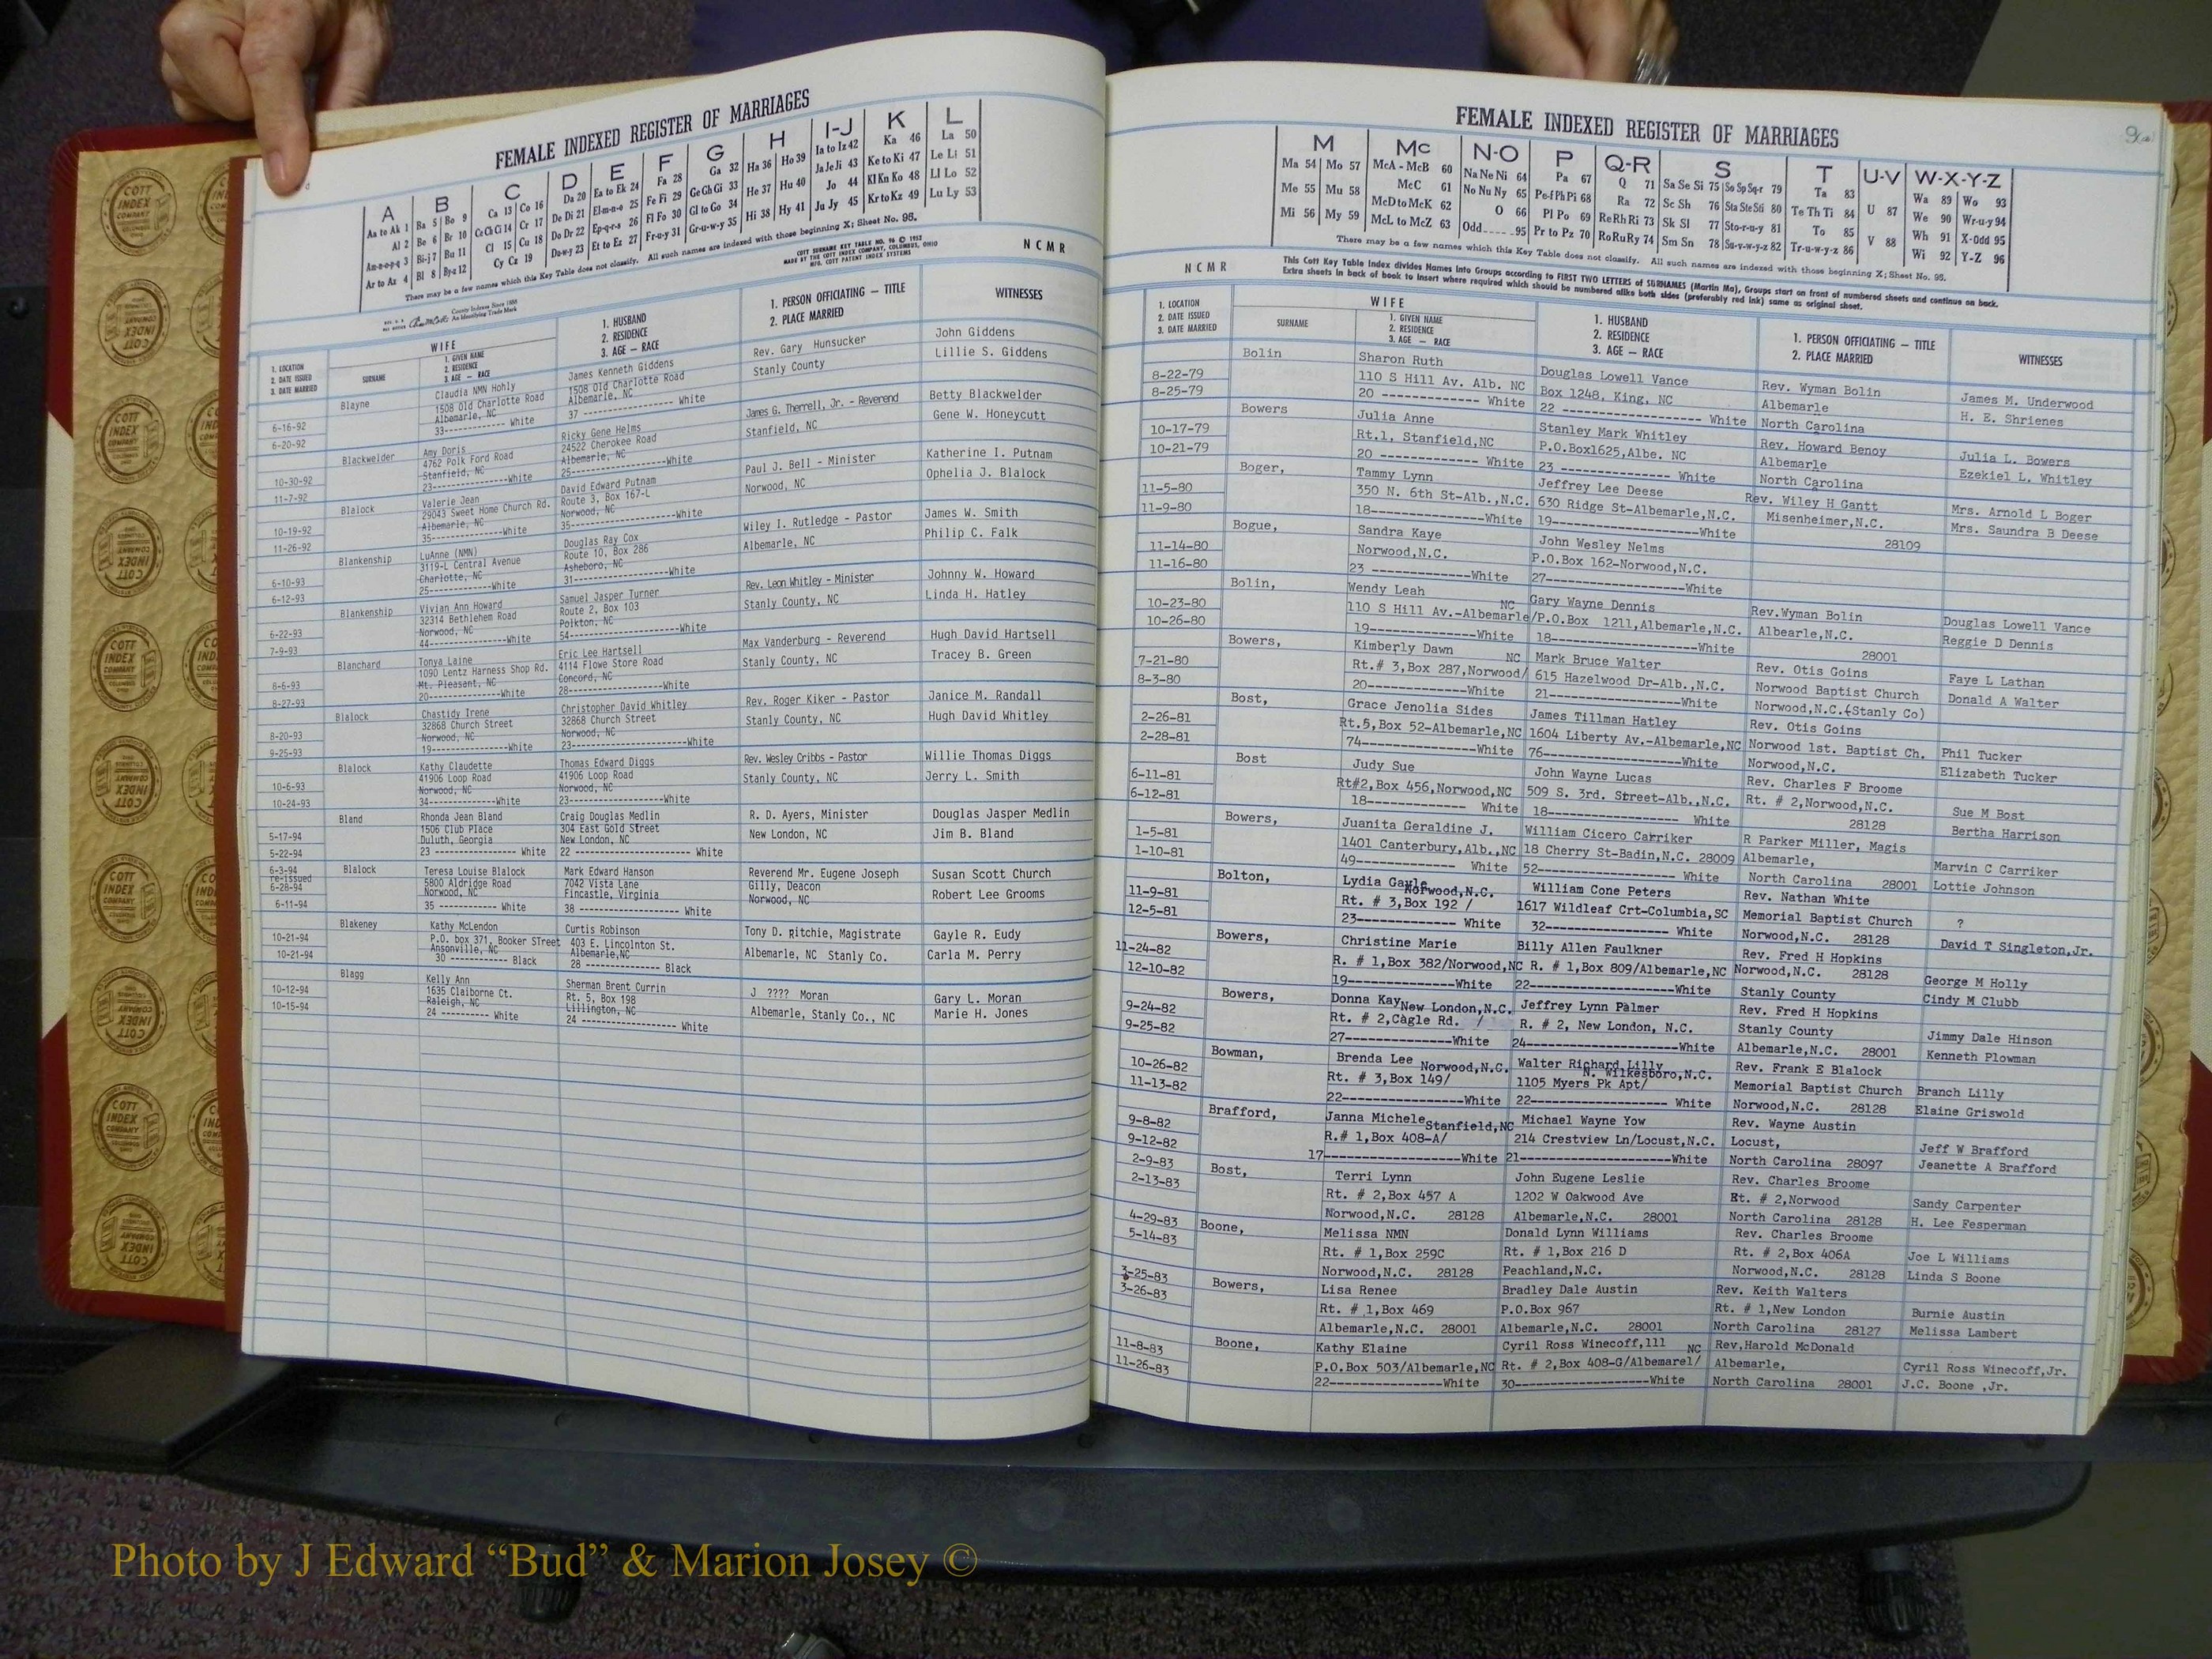 FEMALE INDEXED REGISTER OF MARRIAGES
A B C D E F G H I-J K L
Aa to Ak 1 Ba 5 Bo 9 Ca 13 Co 16 Da 20 Ea to Ek 24 Fa 28 Ga 32 Ha 36 Ho 39 Ia to Iz 42 Ka 46 La 50
Al 2 Be 6 Br 10 Ce Ch Ci 14 Cr 17 De Di 21 El-m-n-o 25 Fe Fi 29 Ge Gh Gi 33 He 37 Hu 40 Ja Je Ji 43 Ke to Ki 47 Le Li 51
Am-n-o-p-q 3 Bi-j 7 Bu 11 Cl 15 Cu 18 Do Dr 22 Ep-q-r-s 26 Fl Fo 30 Gl to Go 34 Hi 38 Hy 41 Jo 44 Kl Kn Ko 48 Ll Lo 52
Ar to Az 4 Bl 8 By-z 12 Cy Cz 19 Du-w-y 23 Et to Ez 27 Fr-u-y 31 Gr-u-w-y 35 Ju Jy 45 Kr to Kz 49 Lu Ly 53
There may be a few names which this Key Table does not classify. All such names are indexed with those beginning X; Sheet No. 95.
COTT SURNAME KEY TABLE NO. 96 © 1952
MADE BY THE COTT INDEX COMPANY, COLUMBUS, OHIO
MFG. COTT PATENT INDEX SYSTEMS
County Indexes Since 1888
An Identifying Trade Mark
N C M R
1. LOCATION
2. DATE ISSUED
3. DATE MARRIED
WIFE
SURNAME
1. GIVEN NAME
2. RESIDENCE
3. AGE — RACE
1. HUSBAND
2. RESIDENCE
3. AGE — RACE
1. PERSON OFFICIATING — TITLE
2. PLACE MARRIED
WITNESSES
6-16-92
6-20-92
Blayne
Claudia NMN Hohly
1508 Old Charlotte Road
Albemarle, NC
33------------- White
James Kenneth Giddens
1508 Old Charlotte Road
Albemarle, NC
37 ------------- White
Rev. Gary Hunsucker
Stanly County
John Giddens
Lillie S. Giddens
10-30-92
11-7-92
Blackwelder
Amy Doris
4762 Polk Ford Road
Stanfield, NC
23-------------White
Ricky Gene Helms
24522 Cherokee Road
Albemarle, NC
25-------------White
James G. Therrell, Jr. - Reverend
Stanfield, NC
Betty Blackwelder
Gene W. Honeycutt
10-19-92
11-26-92
Blalock
Valerie Jean
29043 Sweet Home Church Rd.
Albemarle, NC
35-------------White
David Edward Putnam
Route 3, Box 167-L
Norwood, NC
35-------------White
Paul J. Bell - Minister
Norwood, NC
Katherine I. Putnam
Ophelia J. Blalock
6-10-93
6-12-93
Blankenship
LuAnne (NMN)
3119-L Central Avenue
Charlotte, NC
25-------------White
Douglas Ray Cox
Route 10, Box 286
Asheboro, NC
31-------------White
Wiley I. Rutledge - Pastor
Albemarle, NC
James W. Smith
Philip C. Falk
6-22-93
7-9-93
Blankenship
Vivian Ann Howard
32314 Bethlehem Road
Norwood, NC
44-------------White
Samuel Jasper Turner
Route 2, Box 103
Polkton, NC
54-------------White
Rev. Leon Whitley - Minister
Stanly County, NC
Johnny W. Howard
Linda H. Hatley
8-6-93
8-27-93
Blanchard
Tonya Laine
1090 Lentz Harness Shop Rd.
Mt. Pleasant, NC
20-------------White
Eric Lee Hartsell
4114 Flowe Store Road
Concord, NC
28-------------White
Max Vanderburg - Reverend
Stanly County, NC
Hugh David Hartsell
Tracey B. Green
8-20-93
9-25-93
Blalock
Chastidy Irene
32868 Church Street
Norwood, NC
19-------------White
Christopher David Whitley
32868 Church Street
Norwood, NC
23-------------White
Rev. Roger Kiker - Pastor
Stanly County, NC
Janice M. Randall
Hugh David Whitley
10-6-93
10-24-93
Blalock
Kathy Claudette
41906 Loop Road
Norwood, NC
34-------------White
Thomas Edward Diggs
41906 Loop Road
Norwood, NC
23-------------White
Rev. Wesley Cribbs - Pastor
Stanly County, NC
Willie Thomas Diggs
Jerry L. Smith
5-17-94
5-22-94
Bland
Rhonda Jean Bland
1506 Club Place
Duluth, Georgia
23 ------------- White
Craig Douglas Medlin
304 East Gold Street
New London, NC
22 ------------- White
R. D. Ayers, Minister
New London, NC
Douglas Jasper Medlin
Jim B. Bland
6-3-94
re-issued
6-28-94
6-11-94
Blalock
Teresa Louise Blalock
5800 Aldridge Road
Norwood, NC
35 ----------- White
Mark Edward Hanson
7042 Vista Lane
Fincastle, Virginia
38 ------------- White
Reverend Mr. Eugene Joseph
Gilly, Deacon
Norwood, NC
Susan Scott Church
Robert Lee Grooms
10-21-94
10-21-94
Blakeney
Kathy McLendon
P.O. box 371, Booker STreet
Ansonville, NC
30 ------------ Black
Curtis Robinson
403 E. Lincolnton St.
Albemarle,NC
28 -------------- Black
Tony D. Ritchie, Magistrate
Albemarle, NC Stanly Co.
Gayle R. Eudy
Carla M. Perry
10-12-94
10-15-94
Blagg
Kelly Ann
1635 Claiborne Ct.
Raleigh, NC
24 ---------- White
Sherman Brent Currin
Rt. 5, Box 198
Lillington, NC
24 ------------------- White
J ???? Moran
Albemarle, Stanly Co., NC
Gary L. Moran
Marie H. Jones
FEMALE INDEXED REGISTER OF MARRIAGES
M Mc N-O P Q-R S T U-V W-X-Y-Z
Ma 54 Mo 57 McA - McB 60 Na Ne Ni 64 Pa 67 Q 71 Sa Se Si 75 So Sp Sq-r 79 Ta 83 Wa 89 Wo 93
Me 55 Mu 58 McC 61 No Nu Ny 65 Pe-f Ph Pi 68 Ra 72 Sc Sh 76 Sta Ste Sti 80 Te Th Ti 84 U 87 We 90 Wr-u-y 94
Mi 56 My 59 McD to McK 62 O 66 Pl Po 69 Re Rh Ri 73 Sk Sl 77 Sto-r-u-y 81 To 85 Wh 91 X-Odd 95
McL to McZ 63 Odd 95 Pr to Pz 70 Ro Ru Ry 74 Sm Sn 78 Su-v-w-y-z 82 Tr-u-w-y-z 86 V 88 Wi 92 Y-Z 96
There may be a few names which this Key Table does not classify. All such names are indexed with those beginning X; Sheet No. 95.
This Cott Key Table Index divides Names into Groups according to FIRST TWO LETTERS of SURNAMES (Martin Ma), Groups start on front of numbered sheets and continue on back.
Extra sheets in back of book to insert where required which should be numbered alike both sides (preferably red ink) same as original sheet.
N C M R
1. LOCATION
2. DATE ISSUED
3. DATE MARRIED
WIFE
SURNAME
1. GIVEN NAME
2. RESIDENCE
3. AGE — RACE
1. HUSBAND
2. RESIDENCE
3. AGE — RACE
1. PERSON OFFICIATING — TITLE
2. PLACE MARRIED
WITNESSES
8-22-79
8-25-79
Bolin
Sharon Ruth
110 S Hill Av. Alb. NC
20 ------------ White
Douglas Lowell Vance
Box 1248, King, NC
22 ---------------- White
Rev. Wyman Bolin
Albemarle
North Carolina
James M. Underwood
H. E. Shrienes
10-17-79
10-21-79
Bowers
Julia Anne
Rt.1, Stanfield,NC
20 ------------ White
Stanley Mark Whitley
P.O.Box1625,Albe. NC
23 -------------- White
Rev. Howard Benoy
Albemarle
North Carolina
Julia L. Bowers
Ezekiel L. Whitley
11-5-80
11-9-80
Boger,
Tammy Lynn
350 N. 6th St-Alb.,N.C.
18--------------White
Jeffrey Lee Deese
630 Ridge St-Albemarle,N.C.
19------------------White
Rev. Wiley H Gantt
Misenheimer,N.C.
28109
Mrs. Arnold L Boger
Mrs. Saundra B Deese
11-14-80
11-16-80
Bogue,
Sandra Kaye
Norwood,N.C.
23 ------------White
John Wesley Nelms
P.O.Box 162-Norwood,N.C.
27-----------------White
10-23-80
10-26-80
Bolin,
Wendy Leah
NC
110 S Hill Av.-Albemarle/
19--------------White
Gary Wayne Dennis
P.O.Box 1211,Albemarle,N.C.
18-----------------White
Rev.Wyman Bolin
Albearle,N.C.
28001
Douglas Lowell Vance
Reggie D Dennis
7-21-80
8-3-80
Bowers,
Kimberly Dawn
NC
Rt.# 3,Box 287,Norwood/
20--------------White
Mark Bruce Walter
615 Hazelwood Dr-Alb.,N.C.
21------------------White
Rev. Otis Goins
Norwood Baptist Church
Norwood,N.C.(Stanly Co)
Faye L Lathan
Donald A Walter
2-26-81
2-28-81
Bost,
Grace Jenolia Sides
Rt.5,Box 52-Albemarle,NC
74---------------White
James Tillman Hatley
1604 Liberty Av.-Albemarle,NC
76-----------------White
Rev. Otis Goins
Norwood 1st. Baptist Ch.
Norwood,N.C.
Phil Tucker
Elizabeth Tucker
6-11-81
6-12-81
Bost
Judy Sue
Rt#2,Box 456,Norwood,NC
18------------- White
John Wayne Lucas
509 S. 3rd. Street-Alb.,N.C.
18----------------- White
Rev. Charles F Broome
Rt. # 2,Norwood,N.C.
28128
Sue M Bost
Bertha Harrison
1-5-81
1-10-81
Bowers,
Juanita Geraldine J.
1401 Canterbury,Alb.,NC
49------------- White
William Cicero Carriker
18 Cherry St-Badin,N.C. 28009
52----------------- White
R Parker Miller, Magis
Albemarle,
North Carolina 28001
Marvin C Carriker
Lottie Johnson
11-9-81
12-5-81
Bolton,
Lydia Gayle
Norwood,N.C.
Rt. # 3,Box 192 /
23------------- White
William Cone Peters
1617 Wildleaf Crt-Columbia,SC
32---------------- White
Rev. Nathan White
Memorial Baptist Church
Norwood,N.C. 28128
?
David T Singleton,Jr.
11-24-82
12-10-82
Bowers,
Christine Marie
R. # 1,Box 382/Norwood,NC
19---------------White
Billy Allen Faulkner
R. # 1,Box 809/Albemarle,NC
22------------------White
Rev. Fred H Hopkins
Norwood,N.C. 28128
Stanly County
George M Holly
Cindy M Clubb
9-24-82
9-25-82
Bowers,
Donna Kay
New London,N.C.
Rt. # 2,Cagle Rd. /
27---------------White
Jeffrey Lynn Palmer
R. # 2, New London, N.C.
24-------------------White
Rev. Fred H Hopkins
Stanly County
Albemarle,N.C. 28001
Jimmy Dale Hinson
Kenneth Plowman
10-26-82
11-13-82
Bowman,
Brenda Lee
Norwood,N.C.
Rt. # 3,Box 149/
22----------------White
Walter Richard Lilly
N. Wilkesboro,N.C.
1105 Myers Pk Apt/
22------------------ White
Rev. Frank E Blalock
Memorial Baptist Church
Norwood,N.C. 28128
Branch Lilly
Elaine Griswold
9-8-82
9-12-82
Brafford,
Janna Michele
Stanfield,NC
R.# 1,Box 408-A/
17------------------White
Michael Wayne Yow
214 Crestview Ln/Locust,N.C.
21-------------------White
Rev. Wayne Austin
Locust,
North Carolina 28097
Jeff W Brafford
Jeanette A Brafford
2-9-83
2-13-83
Bost,
Terri Lynn
Rt. # 2,Box 457 A
Norwood,N.C. 28128
John Eugene Leslie
1202 W Oakwood Ave
Albemarle,N.C. 28001
Rev. Charles Broome
Rt. # 2,Norwood
North Carolina 28128
Sandy Carpenter
H. Lee Fesperman
4-29-83
5-14-83
Boone,
Melissa NMN
Rt. # 1,Box 259C
Norwood,N.C. 28128
Donald Lynn Williams
Rt. # 1,Box 216 D
Peachland,N.C.
Rev. Charles Broome
Rt. # 2,Box 406A
Norwood,N.C. 28128
Joe L Williams
Linda S Boone
3-25-83
3-26-83
Bowers,
Lisa Renee
Rt. # 1,Box 469
Albemarle,N.C. 28001
Bradley Dale Austin
P.O.Box 967
Albemarle,N.C. 28001
Rev. Keith Walters
Rt. # 1,New London
North Carolina 28127
Burnie Austin
Melissa Lambert
11-8-83
11-26-83
Boone,
Kathy Elaine
P.O.Box 503/Albemarle,NC
22----------------White
Cyril Ross Winecoff,lll
NC
Rt. # 2,Box 408-G/Albemarel/
30-------------------White
Rev,Harold McDonald
Albemarle,
North Carolina 28001
Cyril Ross Winecoff,Jr.
J.C. Boone ,Jr.
COTT INDEX COMPANY
Photo by J Edward “Bud” & Marion Josey ©